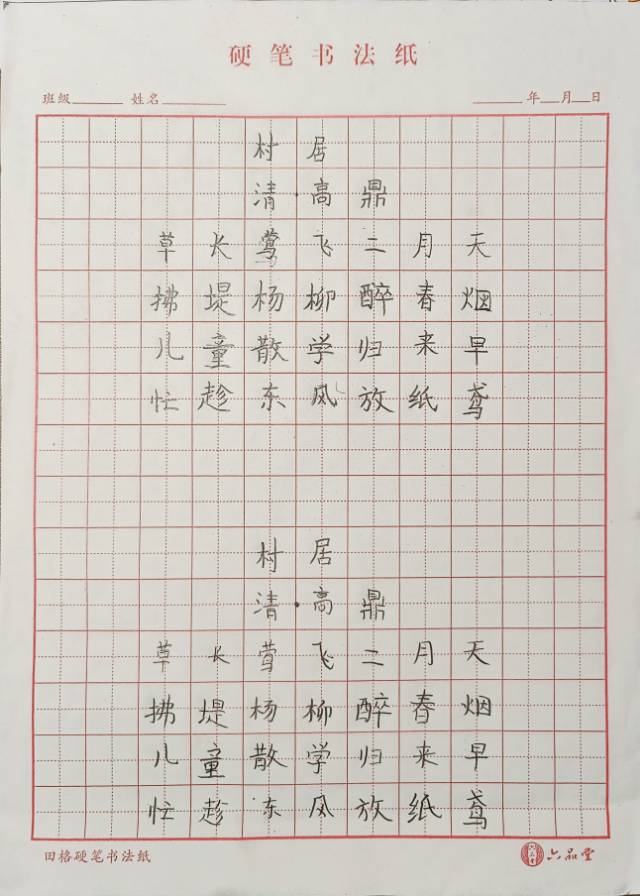 硬笔书法纸
班级 姓名 年 月 日
村居
清·高鼎
草长莺飞二月天
拂堤杨柳醉春烟
儿童散学归来早
忙趁东风放纸鸢
村居
清·高鼎
草长莺飞二月天
拂堤杨柳醉春烟
儿童散学归来早
忙趁东风放纸鸢
田格硬笔书法纸 六品堂